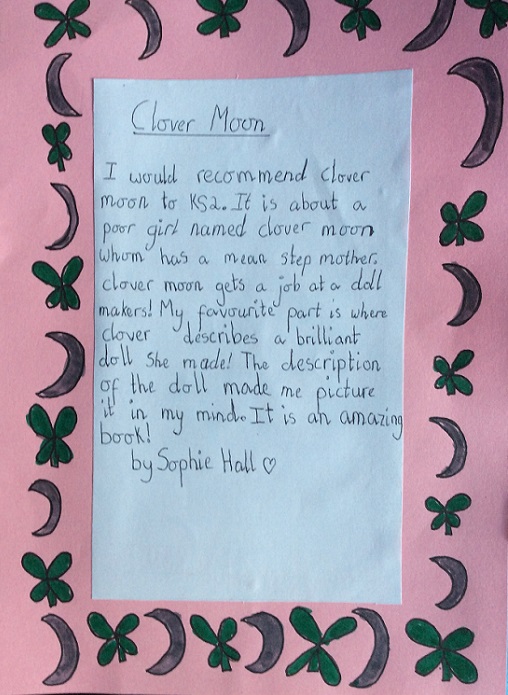 Clover Moon
I would recommend clover
moon to KS2. It is about a
poor girl named clover moon
whom has a mean step mother.
clover moon gets a job at a doll
makers! My favourite part is where
clover describes a brilliant
doll She made! The description
of the doll made me picture
it in my mind. It is an amazing
book!
by Sophie Hall ♡